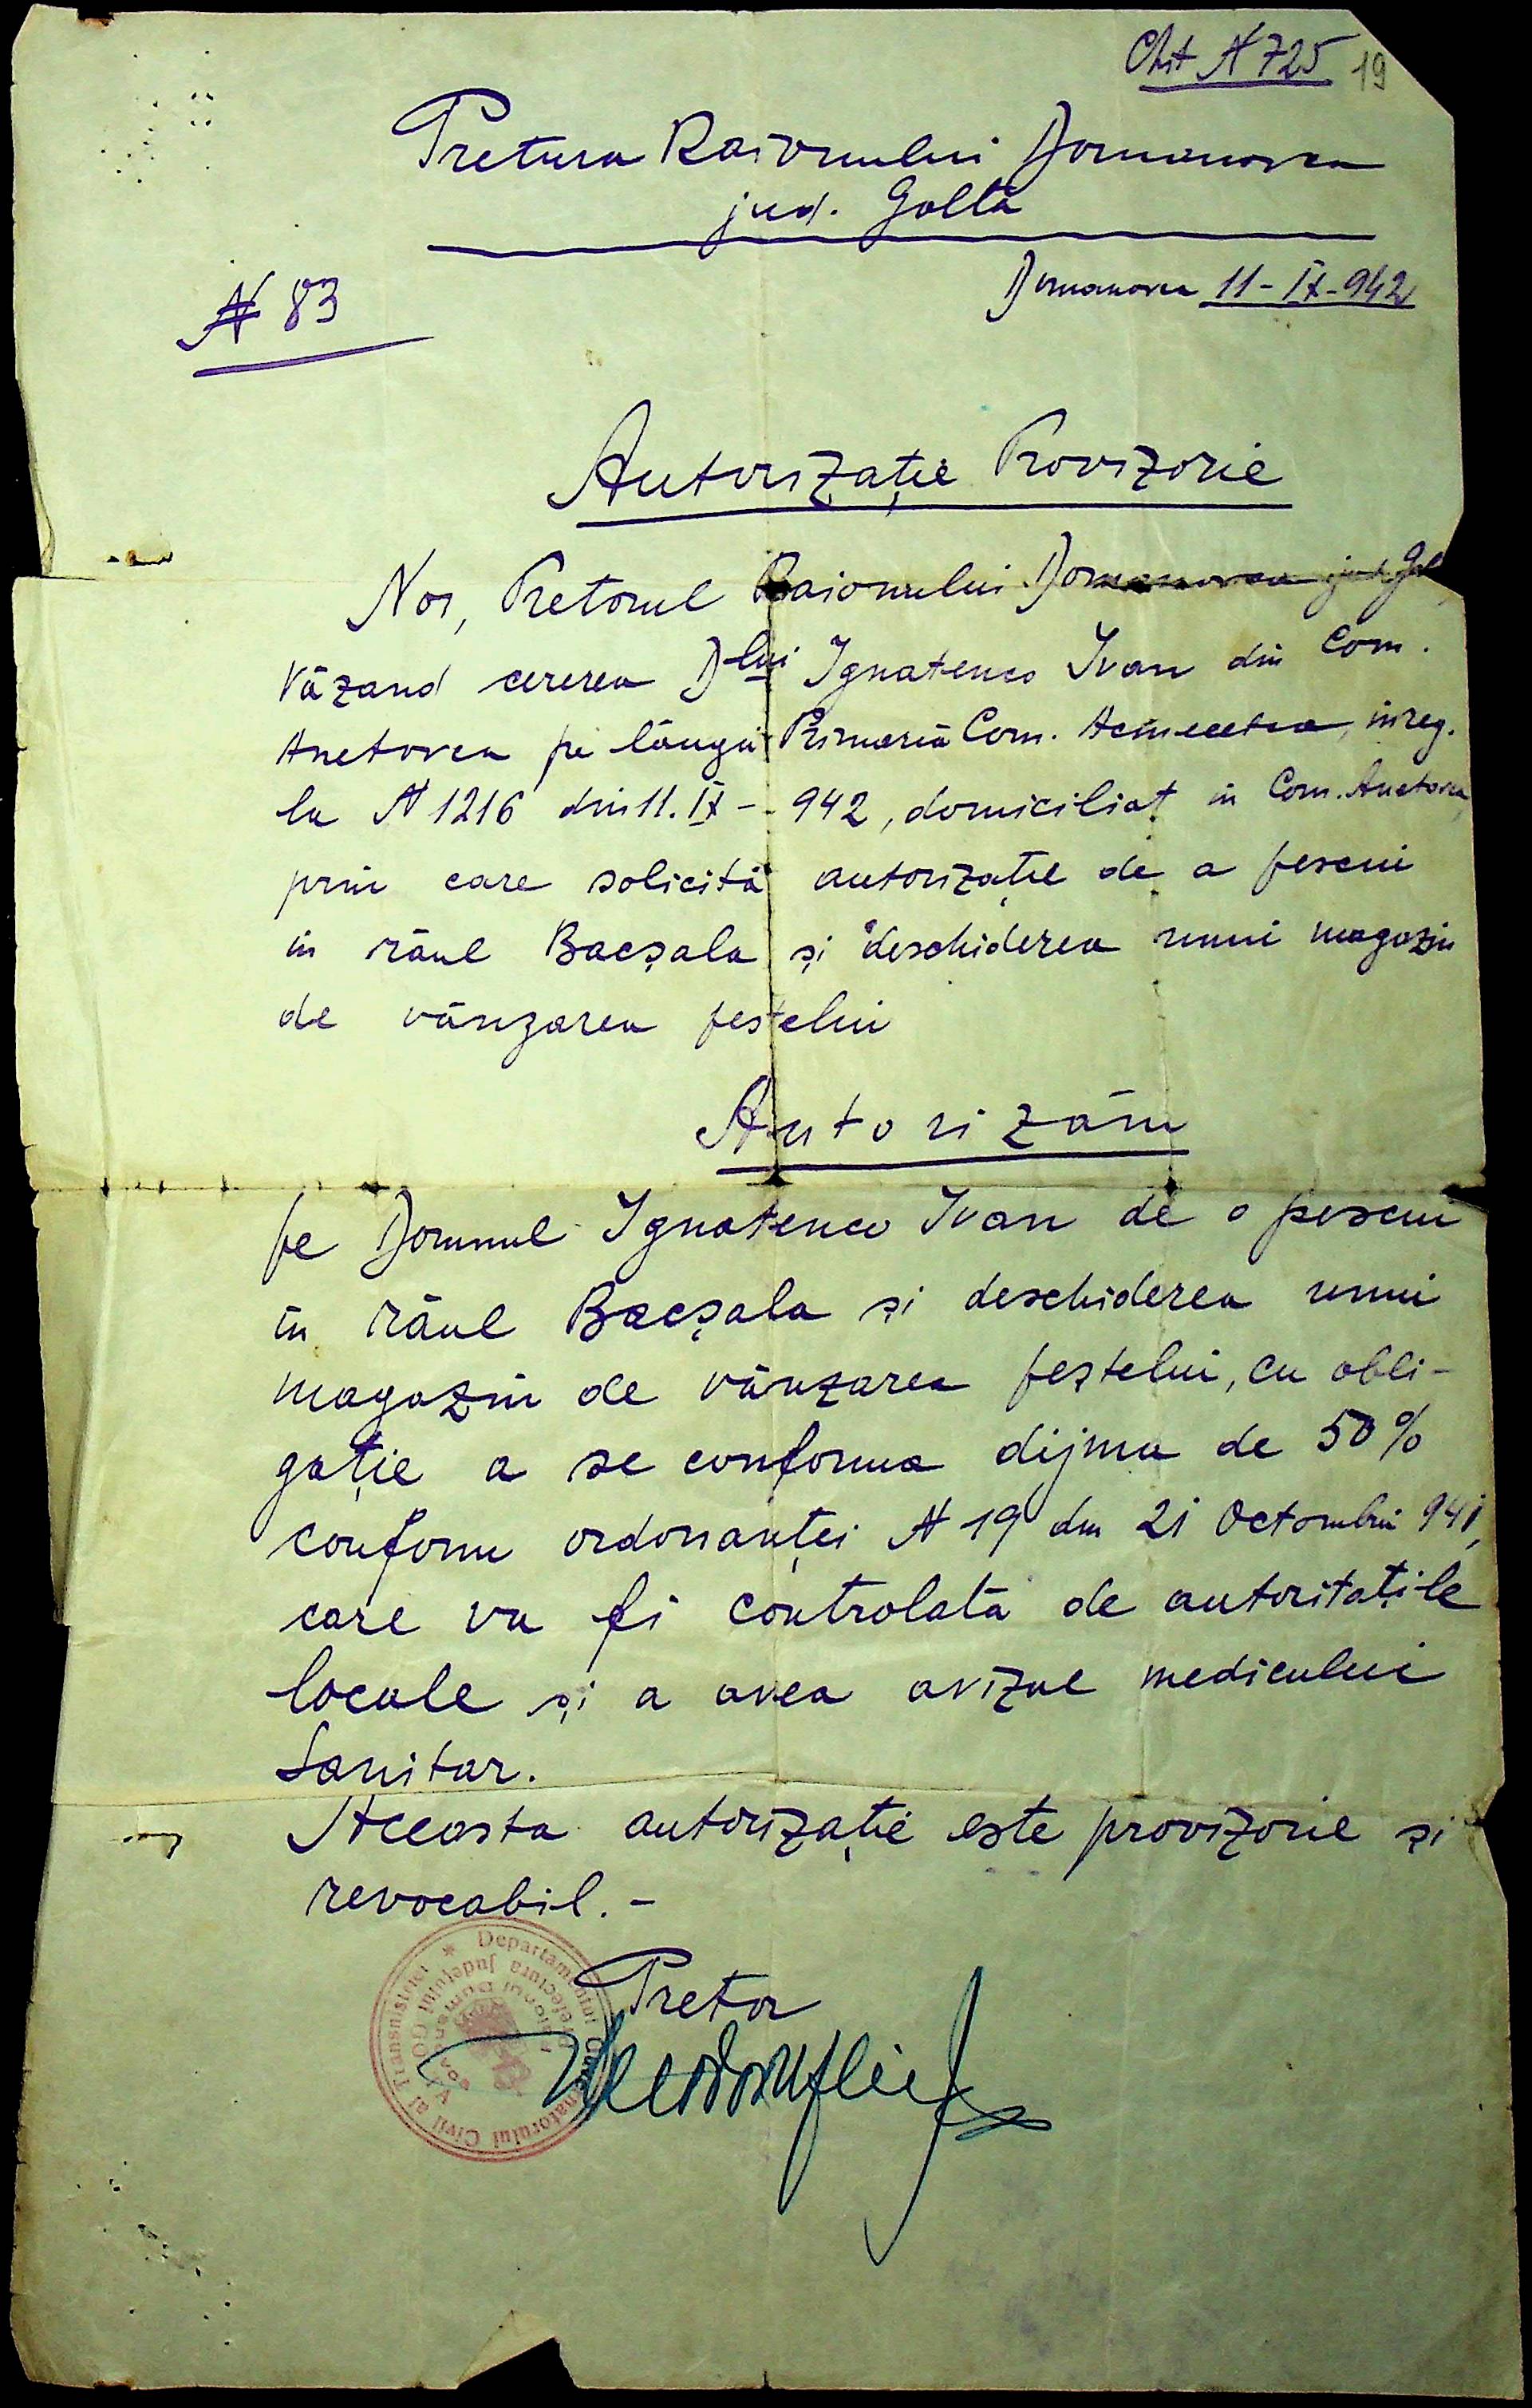 Chit N 725 19
Pretura Raionului Domanovca
jud. Golta
Domanovca 11-IX-942
N 83
Autorizaţie Provizorie
Noi, Pretorul Raionului Domanovca jud. Gol
Văzand cererea Dlui Ignatenco Ivan din Com.
Anetovca pe lângă Primăria Com. Acimecetca, inreg.
la N 1216 din 11. IX - 942, domiciliat in Com. Anetovca,
prin care solicită autorizaţie de a pescui
in râul Bacşala şi deschiderea unui magazin
de vânzarea pestelui
Autorizăm
pe Domnul Ignatenco Ivan de a pescui
in râul Bacşala şi deschiderea unui
magazin de vânzarea peştelui, cu obli-
gaţie a se conforma dijma de 50%
conform ordonanţei N 19 din 21 Octombrie 941,
care va fi controlată de autoritaţile
locale şi a avea avizul medicului
Sanitar.
Aceasta autorizaţie este provizorie şi
revocabil. -
Pretor
Departamentul Guvernatorului Civil al Transnistriei
Prefectura Judeţului Golta